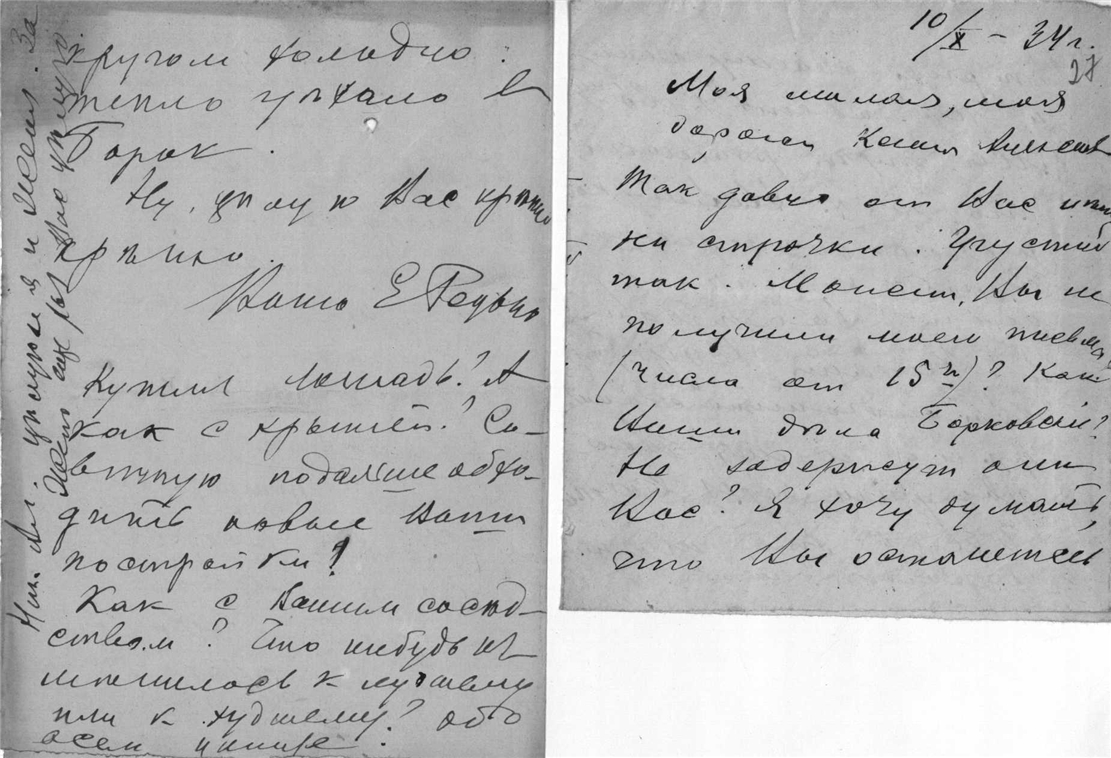 кругом холодно:
тепло уехало в
Борок.
Ну, целую Вас крепко
крепко.
Ваша Е
Купили лошадь? А
как с крышей? Со-
ветую подальше обхо-
дить новые Ваши
постройки!
Как с Вашим сосед-
ством? Что нибудь из-
менилось к лучшему
или к худшему? обо
всем пишите.
Ник. Ал. целуем я и Женя. За
Вас целую.
10/X – 34 г.
27
Моя милая, моя
дорогая Ксения
Так давно от Вас
ни строчки. Грустно
так. Может, Вы не
получили моего письма
(числа от 15 го)? Как
Ваши дела Борковские?
Не задержут они
Вас? Я хочу думать,
что Вы останетесь